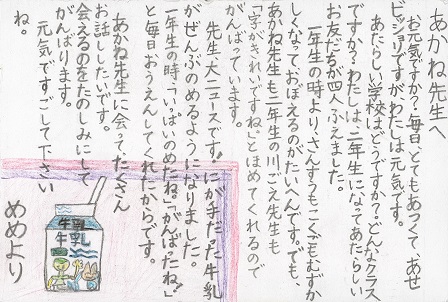 あかね先生へ
お元気ですか？毎日とてもあつくて、あせ
ビッショリですがわたしは元気です。
あたらしい学校はどうですか？どんなクラス
ですか？わたしは、二年生になってあたらしい
お友だちが四人ふえました。
一年生の時より、さんすうもこくごもむずか
しくなっておぼえるのがたいへんです。でも、
あかね先生も二年生の川ごえ先生も
「字がきれいですね。」とほめてくれるので
がんばっています。
先生、大ニュースです！にが手だった牛乳
がぜんぶのめるようになりました。
一年生の時、「いっぱいのめたね。」「がんばったね！」
と毎日おうえんしてくれたからです。
あかね先生に会って、たくさん
お話ししたいです。
会えるのをたのしみにして
がんばります。
元気ですごして下さい
ね。
めめより
牛乳
牛乳